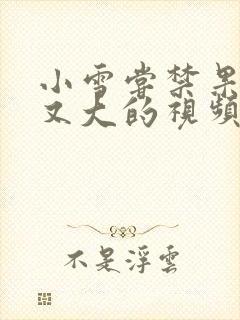 小雪嘗禁果
又大的視頻
不是浮雲